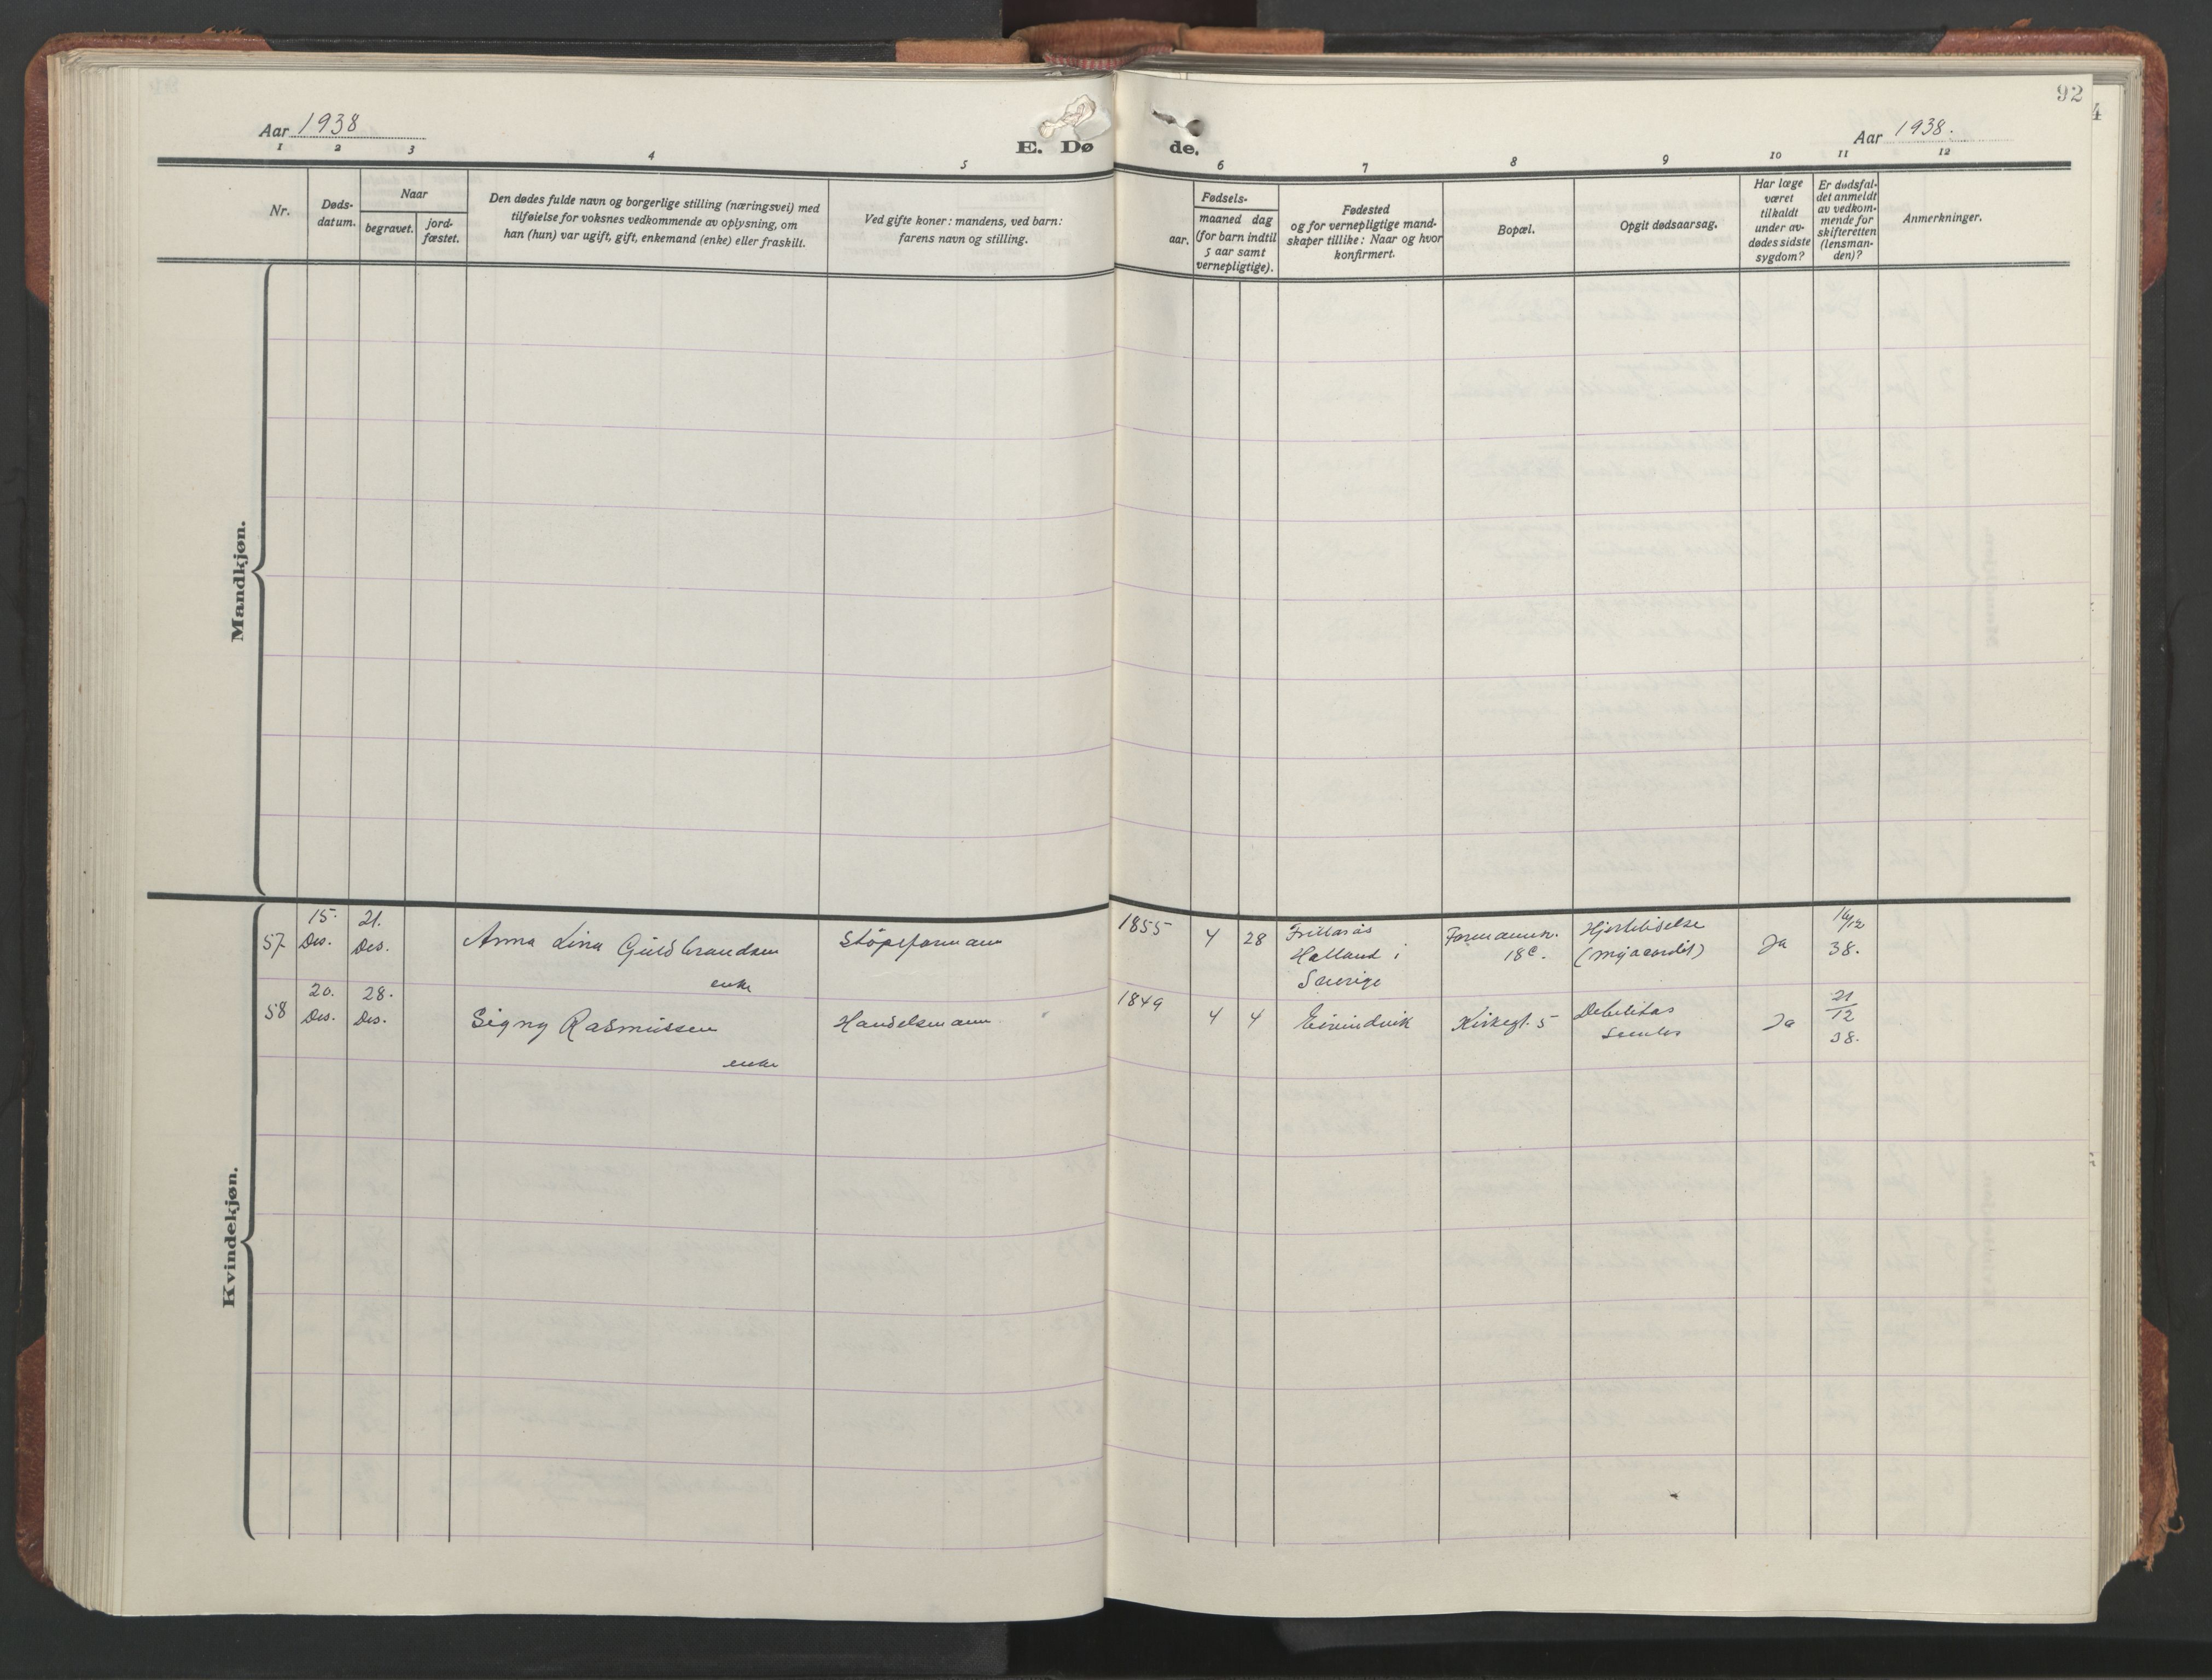 92
4
Aar 1938
E. Dø
de.
Aar 1938.
1 2 3 4 5 6 7 8 9 10 11 12
Nr.
Døds-
datum.
Naar
begravet.
jord-
fæstet.
Den dødes fulde navn og borgerlige stilling (næringsvei) med
tilføielse for voksnes vedkommende av oplysning, om
han (hun) var ugift, gift, enkemand (enke) eller fraskilt.
Ved gifte koner: mandens, ved barn:
farens navn og stilling.
Fødsels-
aar.
maaned dag
(for barn indtil
5 aar samt
vernepligtige).
Fødested
og for vernepligtige mand-
skaper tillike: Naar og hvor
konfirmert.
Bopæl.
Opgit dødsaarsag.
Har læge
været
tilkaldt
under av-
dødes sidste
sygdom?
Er dødsfal-
det anmeldt
av vedkom-
mende for
skifteretten
(lensman-
den)?
Anmerkninger.
Mandkjøn.
Kvindekjøn.
57
15.
Des.
21.
Des.
Anna Lina Guldbrandsen
enke
Støpeformann
1855
4
28
Halland i
Sverige
Formannsv.
18c.
Hjertelidelse
(myocardit)
Ja
16/12
38.
58
20.
Des.
28.
Des.
Signy Rasmussen
enke
Handelsmann
1849
4
4
Eivindvik
Kirkegt. 5
Debilitas
senilis
Ja
21
12
38.